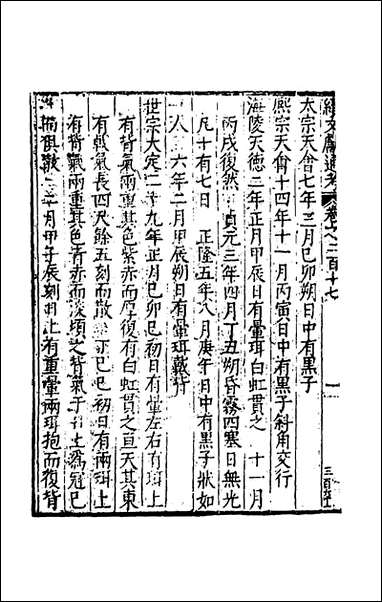 續文獻通考 卷之二百十七
太宗天會七年三月己卯朔日中有黑子
熙宗天會十四年十一月丙寅日中有黑子斜角交行
海陵天德二年正月甲辰日有暈珥白虹貫之 十一月
丙戌復然 貞元三年四月丁丑朔昏霧四塞日無光
凡十有七日 正隆五年八月庚午日中有黑子狀如
人 六年二月甲辰朔日有暈珥戴背
世宗大定二十九年正月己卯巳初日有暈左右有珥上
有背氣兩重其色紫赤而厚復有白虹貫之亘天其東
有戟氣長四尺餘五刻而散 巳初日有兩珥上
有背氣兩重其色青赤而淡頃之背氣于日上爲冠已
而俱散 二月甲子辰刻日上有重暈兩珥抱而復背